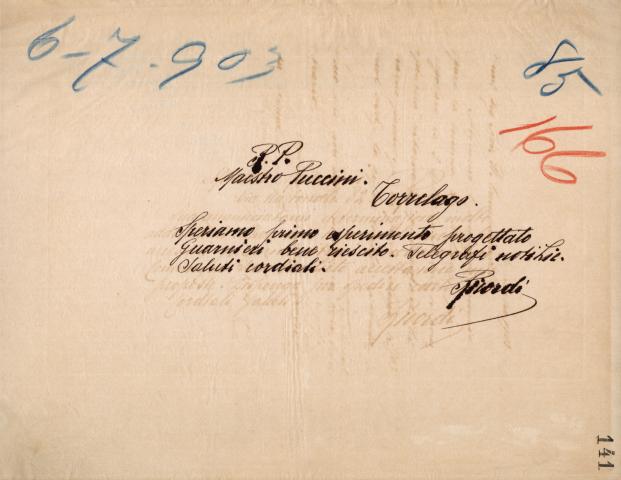 6-7-903
85
166
R.P.
Maestro Puccini.
Torrelago.
Speriamo primo esperimento progettato
Guarnieri bene riescito. Telegrafi notizie.
Saluti cordiali.
GRicordi
141